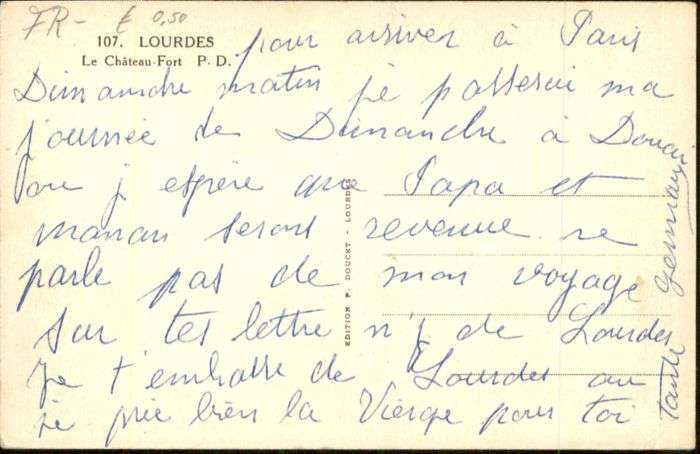 FR- £ 0,50
107. LOURDES
Le Château-Fort P. D.
pour arriver à Paris
Dimanche matin je passerai ma
journée de Dimanche à Douai
ou j espère que Papa et
maman seront revenue ne
parle pas de mon voyage
sur tes lettre n'j de Lourdes
Je t'embrasse de Lourdes ou
je prie bien la Vierge pour toi
tante Germaine
EDITION P. DOUCET - LOURDES